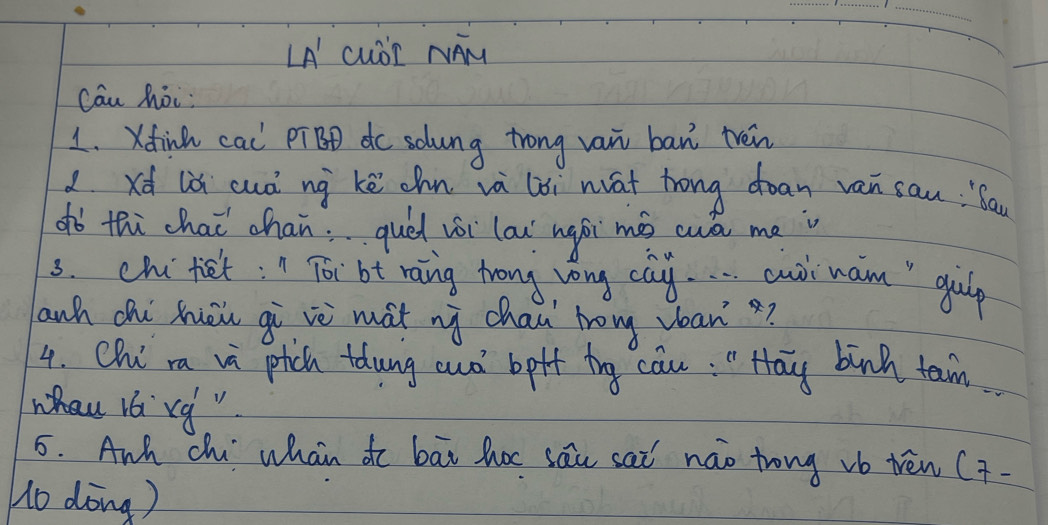 LÁ CUỐI NĂM
Câu hỏi:
1. Xđịnh các PTBĐ đc sdụng trong văn bản trên
2. Xđ lời của ng kể chn và lời nvật trong đoạn văn sau: "Sau
đó thì chắc chắn... quét vôi lại ngôi mộ của mẹ"
3. Chi tiết: "Tôi bt rằng trong vòng cây.... cuối năm" giúp
anh chị hiểu gì về nvật ng cháu trong vbản *?
4. Chỉ ra và ptích tdụng của bptt trg câu: "Hãy bình tâm...
nhau rồi xg".
5. Anh chị nhận đc bài học sâu sắc nào trong vb trên (7-
10 dòng)